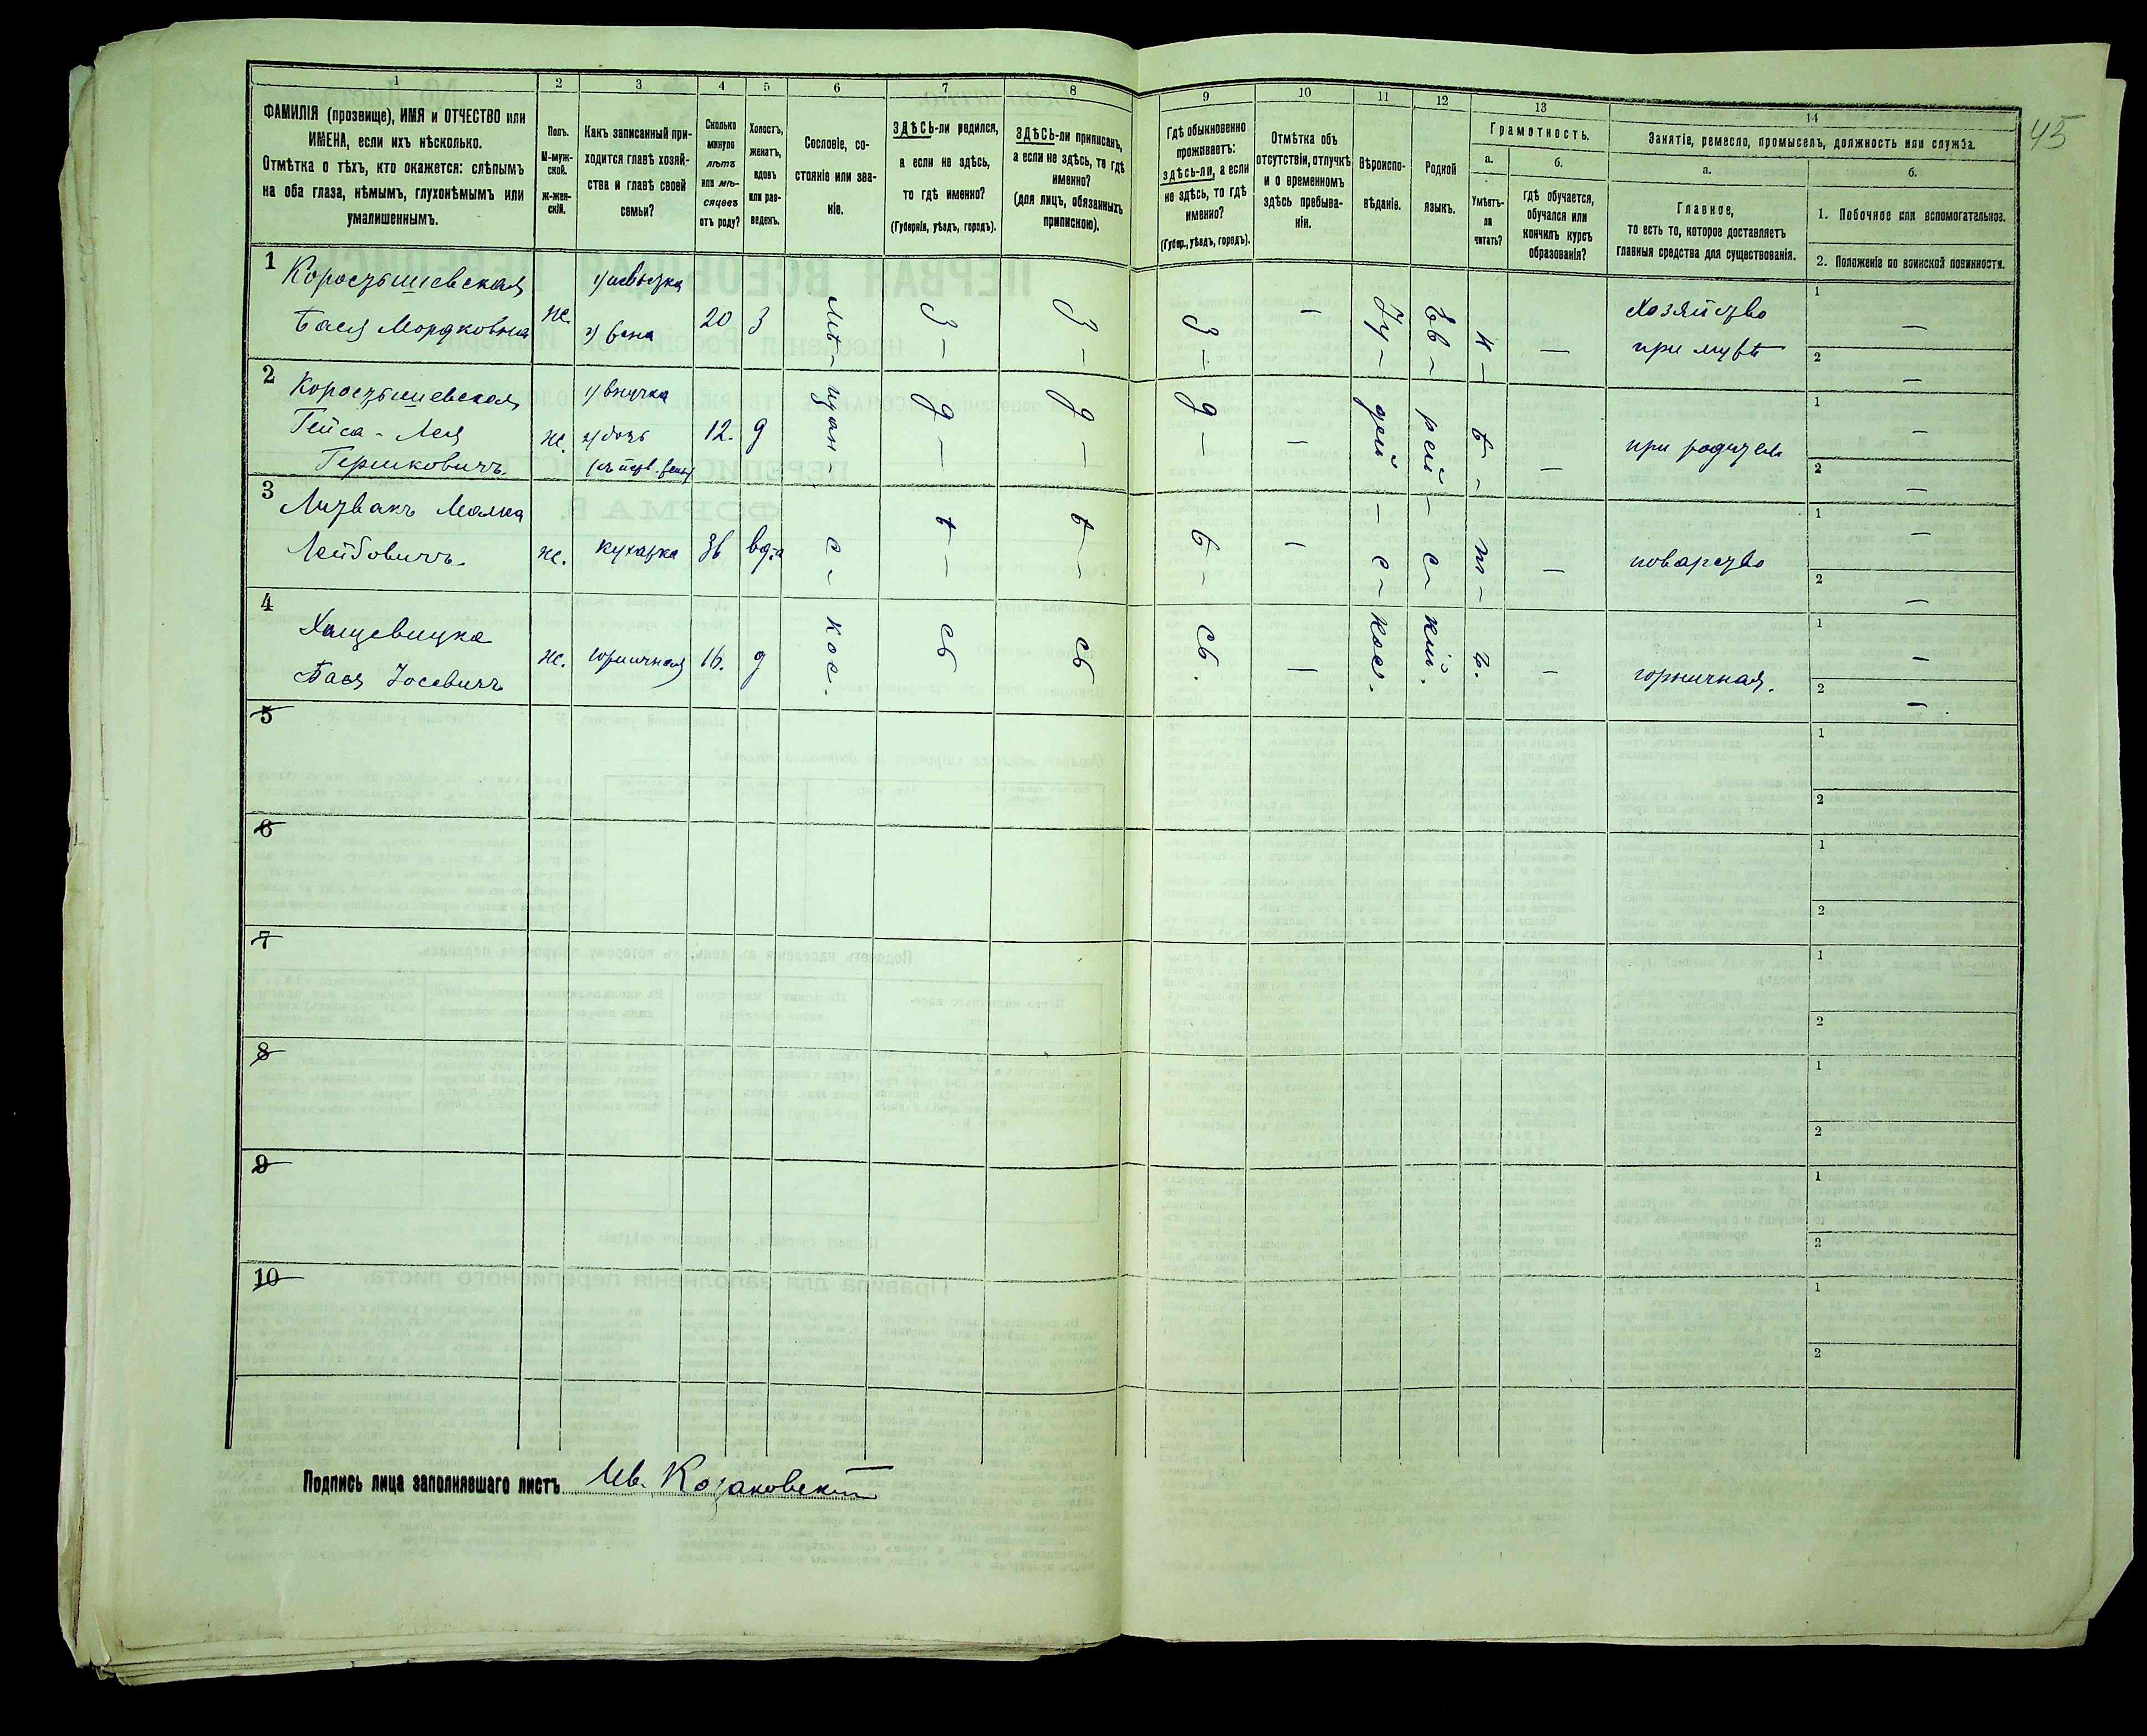 45
1
2
3
4
5
6
7
8
9
10
11
12
13
14
ФАМИЛІЯ (прозвище), ИМЯ и ОТЧЕСТВО или
ИМЕНА, если ихъ нѣсколько.
Отмѣтка о тѣхъ, кто окажется: слѣпымъ
на оба глаза, нѣмымъ, глухонѣмымъ или
умалишеннымъ.
Полъ.
М-муж-
ской.
ж-жен-
скій.
Какъ записанный при-
ходится главѣ хозяй-
ства и главѣ своей
семьи?
Сколько
минуло
лѣтъ
или мѣ-
сяцевъ
отъ роду?
Холостъ,
женатъ,
вдовъ
или раз-
веденъ.
Сословіе, со-
стояніе или зва-
ніе.
ЗДѢСЬ-ли родился,
а если не здѣсь,
то гдѣ именно?
(Губернія, уѣздъ, городъ).
ЗДѢСЬ-ли приписанъ,
а если не здѣсь, то гдѣ
именно?
(для лицъ, обязанныхъ
припискою).
Гдѣ обыкновенно
проживаетъ:
здѣсь-ли, а если
не здѣсь, то гдѣ
именно?
(Губер., уѣздъ, городъ).
Отмѣтка объ
отсутствіи, отлучкѣ
и о временномъ
здѣсь пребыва-
ніи.
Вѣроиспо-
вѣданіе.
Родной
языкъ.
Грамотность.
а.
Умѣетъ-
ли
читать?
б.
гдѣ обучается,
обучался или
кончилъ курсъ
образованія?
Занятіе, ремесло, промыселъ, должность или служба.
а.
Главное,
то есть то, которое доставляетъ
главныя средства для существованія.
б.
1. Побочное или вспомогательное.
2. Положеніе по воинской повинности.
1
Коростышевская
Бася Мордковна
ж.
1) невѣстка
2) жена
20
з
Мѣ-
З-
З-
З-
-
Іу-
Ев-
н-
-
Хозяйство
при мужѣ
1 -
2 -
2
Коростышевская
Гейса-Лея
Гершковичъ.
ж.
1) внучка
2) дочь
(съ перв. жены)
12.
д
щан-
д-
д-
д-
-
дей-
рей-
ѣ-
-
при родител
1 -
2 -
3
Литвакъ Малка
Лейбовичъ.
ж.
кухарка
36
вд-а
с-
ѣ-
ѣ-
ѣ-
-
с-
с-
т-
-
поварство
1 -
2 -
4
Хащевицка
Бася Іосевичъ
ж.
горничная
16.
д
кос.
сь
сь
сь.
-
кое.
кій.
ъ.
-
горничная.
1 -
2 -
5
1
2
6
1
2
7
1
2
8
1
2
9
1
2
10
1
2
Подпись лица заполнявшаго листъ Ив. Козаковскій